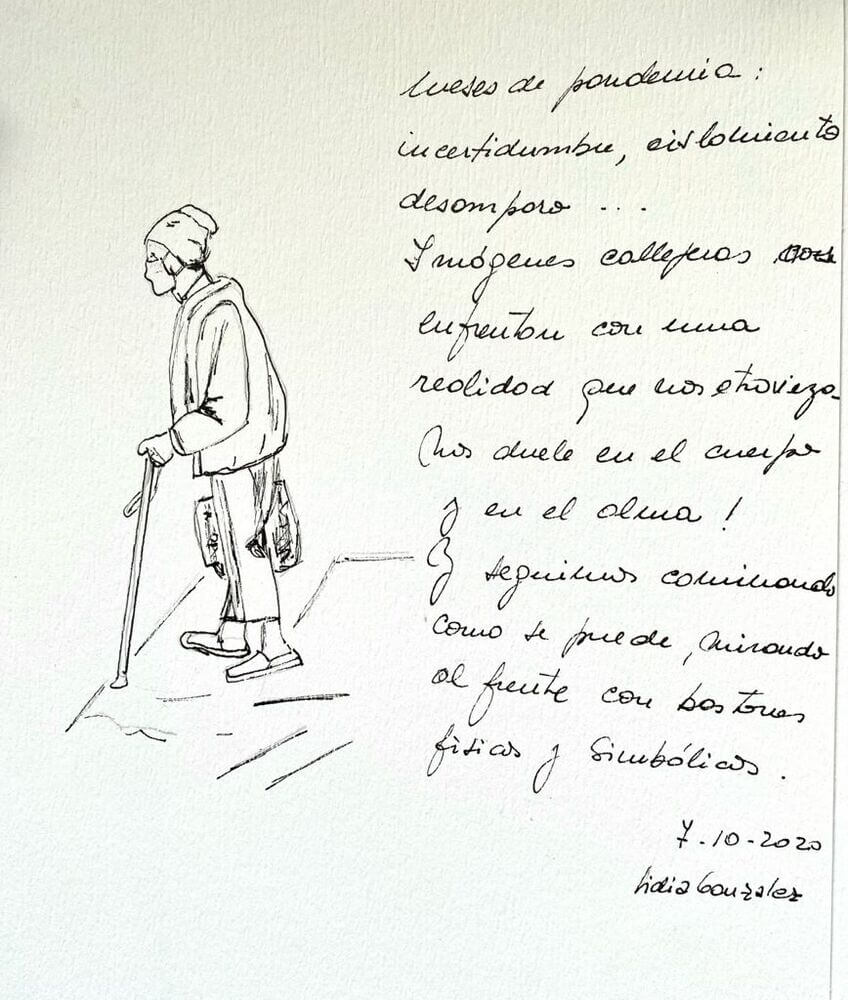 Meses de pandemia:
incertidumbre, aislamiento
desamparo ...
Imágenes callejeras nos
enfrentan con una
realidad que nos atravieza.
Nos duele en el cuerpo
y en el alma!
Y seguimos caminando
como se puede, mirando
al frente con bastones
físicos y simbólicos.
7-10-2020
Lidia Gonzalez